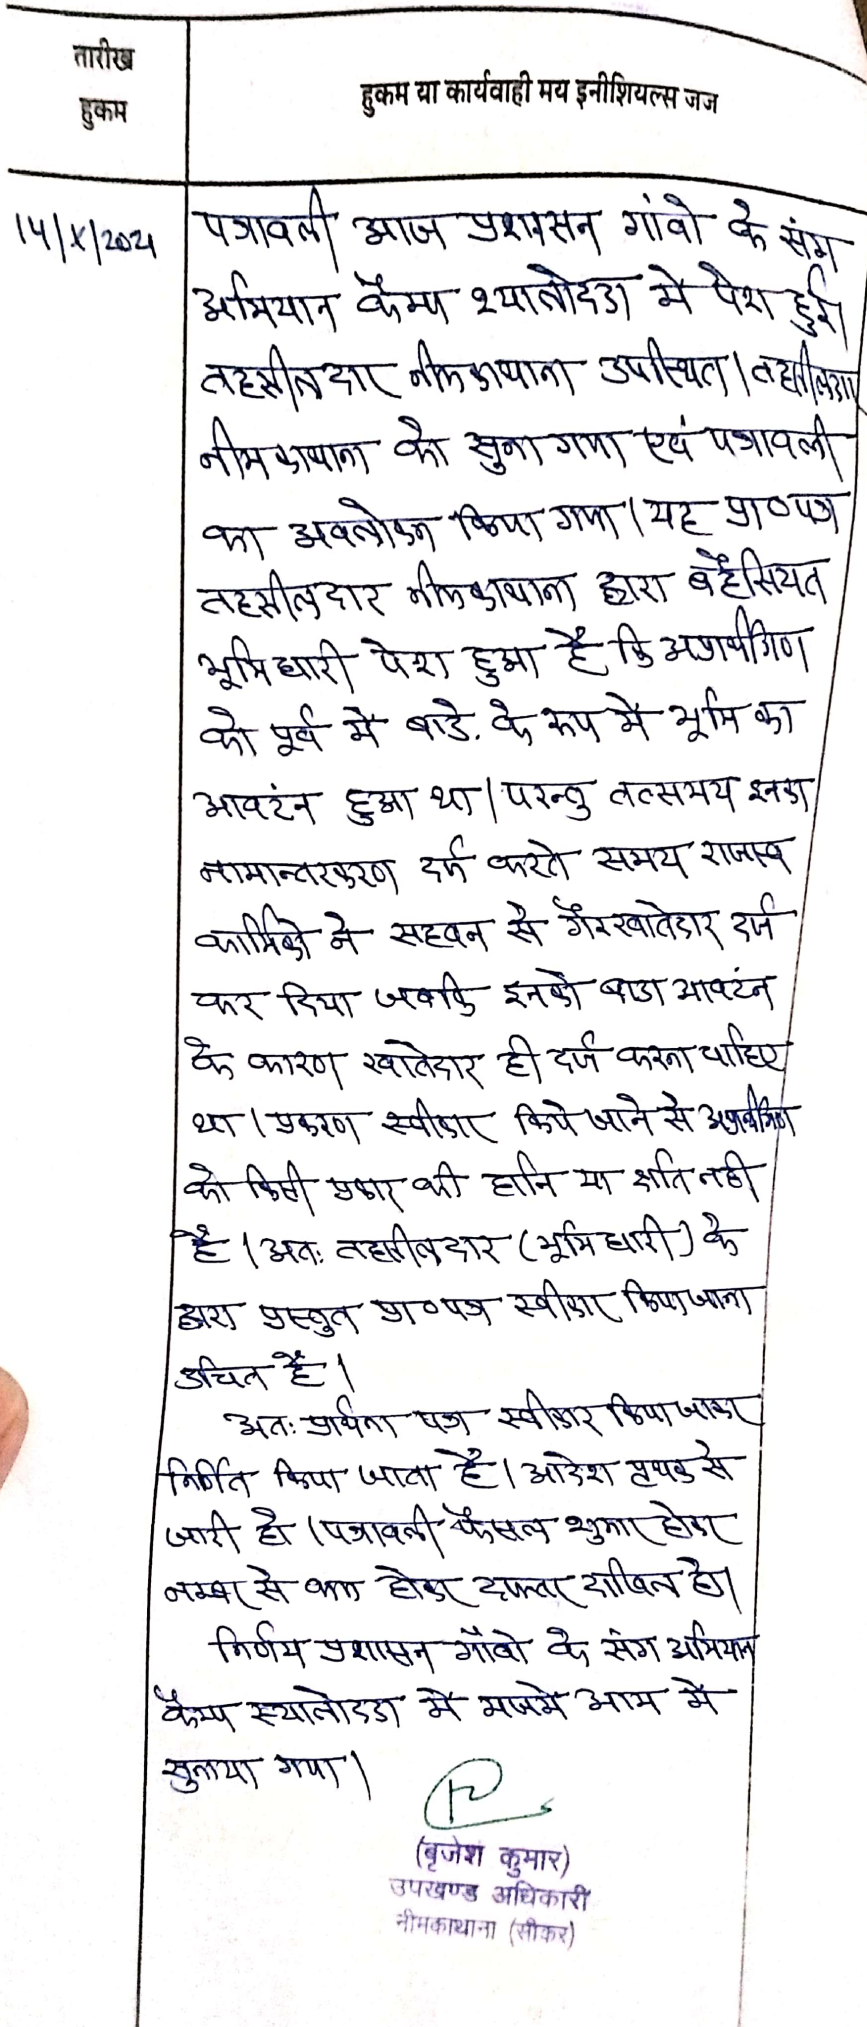 तारीख
हुकम
हुकम या कार्यवाही मय इनीशियल्स जज
14/X/2021
पत्रावली आज प्रशासन गांवो के संग
अभियान कैम्प श्यालोदडा मे पेश हुई।
तहसीलदार नीमकाथाना उपस्थित। तहसीलदार
नीमकाथाना को सुना गया एवं पत्रावली
का अवलोकन किया गया। यह प्रा०पत्र
तहसीलदार नीमकाथाना द्वारा बहैसियत
भूमिधारी पेश हुआ है कि अप्रार्थीगण
को पूर्व मे बाडे. के रूप मे भूमि का
आवटंन हुआ था। परन्तु तत्समय इनका
नामान्तरकरण दर्ज करते समय राजस्व
कार्मिको ने सहवन से गैरखातेदार दर्ज
कर दिया जबकि इनको बाडा आवटंन
के कारण खातेदार ही दर्ज करना चाहिए
था। प्रकरण स्वीकार किये जाने से अप्रार्थीगण
को किसी प्रकार की हानि या क्षति नही
है। अतः तहसीलदार (भूमिधारी) के
द्वारा प्रस्तुत प्रा०पत्र स्वीकार किया जाना
उचित है।
अतः प्रार्थना पत्र स्वीकार किया जाकर
निर्णित किया जाता है। आदेश पृथक से
जारी हो। पत्रावली फैसल शुमार होकर
नम्बर से कम होकर दफ्तर दाखिल हो।
निर्णय प्रशासन गाँवो के संग अभियान
कैम्प स्यालोदडा मे मजमे आम मे
सुनाया गया।
(बृजेश कुमार)
उपखण्ड अधिकारी
नीमकाथाना (सीकर)